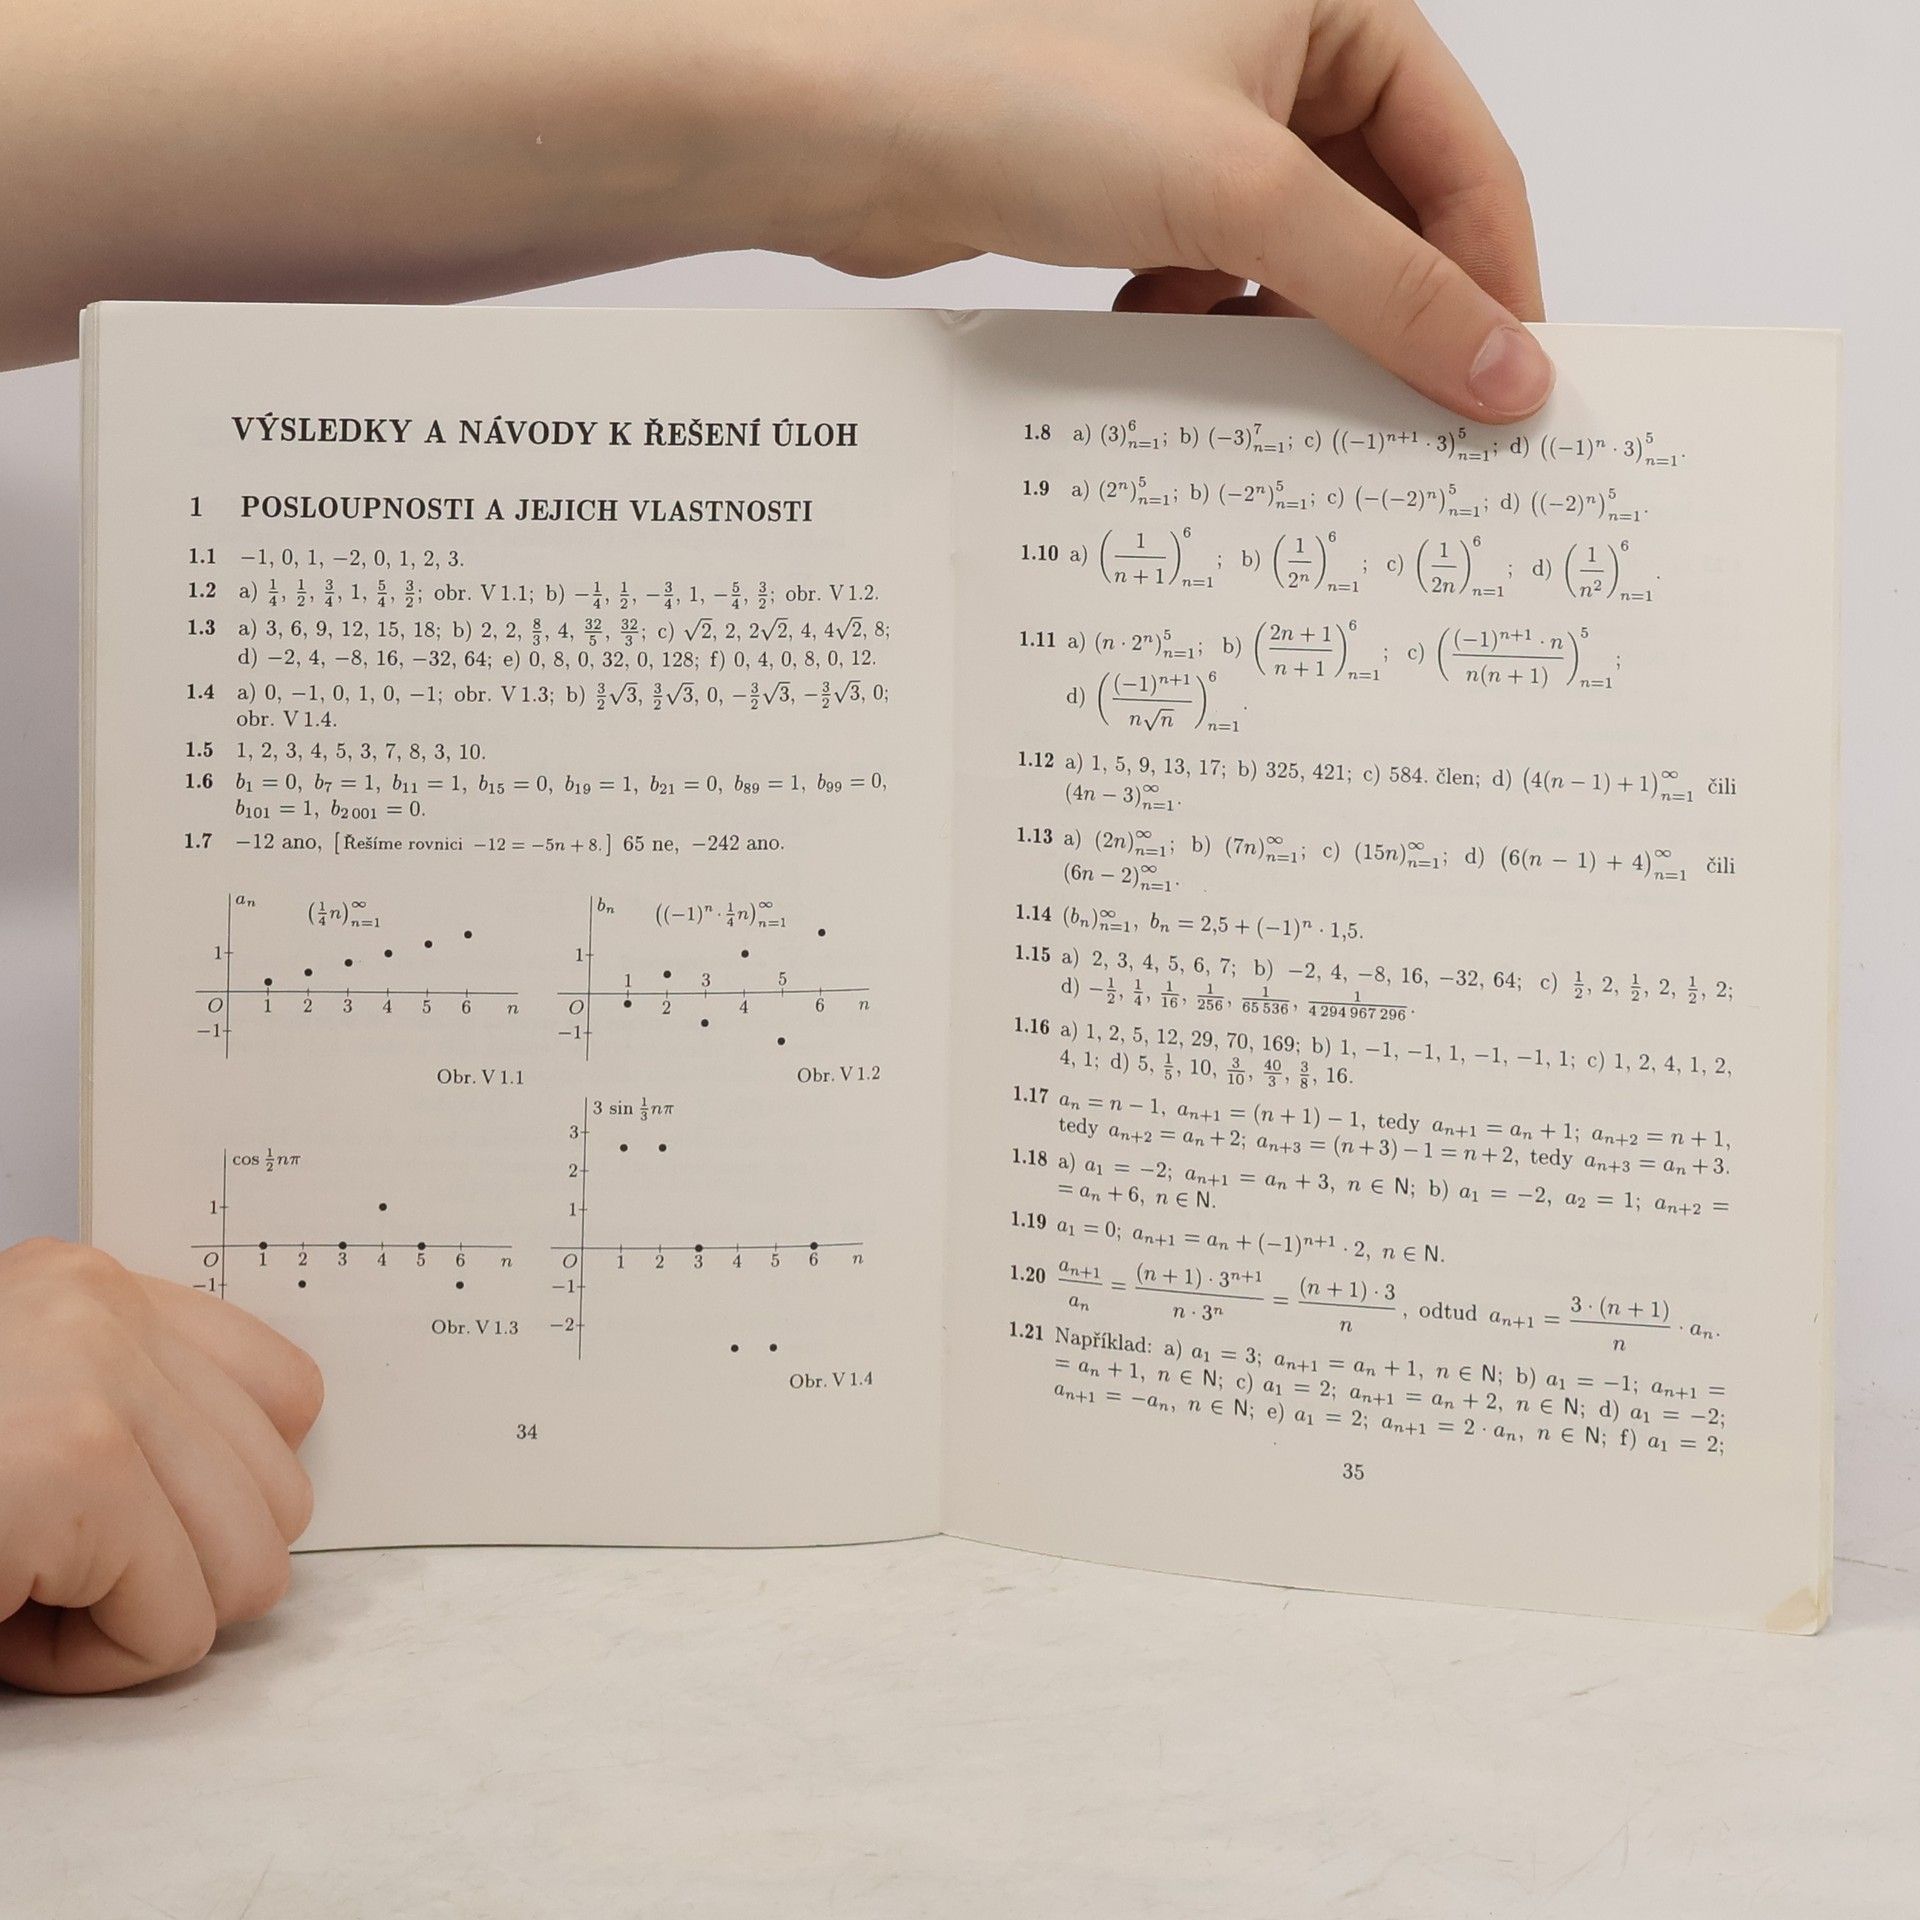 VÝSLEDKY A NÁVODY K ŘEŠENÍ ÚLOH
1 POSLOUPNOSTI A JEJICH VLASTNOSTI
1.1 −1, 0, 1, −2, 0, 1, 2, 3.
1.2 a) 1/4, 1/2, 3/4, 1, 5/4, 3/2; obr. V 1.1; b) −1/4, 1/2, −3/4, 1, −5/4, 3/2; obr. V 1.2.
1.3 a) 3, 6, 9, 12, 15, 18; b) 2, 2, 8/3, 4, 32/5, 32/3; c) √2, 2, 2√2, 4, 4√2, 8;
d) −2, 4, −8, 16, −32, 64; e) 0, 8, 0, 32, 0, 128; f) 0, 4, 0, 8, 0, 12.
1.4 a) 0, −1, 0, 1, 0, −1; obr. V 1.3; b) 3/2√3, 3/2√3, 0, −3/2√3, −3/2√3, 0;
obr. V 1.4.
1.5 1, 2, 3, 4, 5, 3, 7, 8, 3, 10.
1.6 b₁ = 0, b₇ = 1, b₁₁ = 1, b₁₅ = 0, b₁₉ = 1, b₂₁ = 0, b₈₉ = 1, b₉₉ = 0,
b₁₀₁ = 1, b₂ ₀₀₁ = 0.
1.7 −12 ano, [Řešíme rovnici −12 = −5n + 8.] 65 ne, −242 ano.
aₙ (1/4 n)_{n=1}^∞
1
O 1 2 3 4 5 6 n
−1
Obr. V 1.1
bₙ ((−1)ⁿ · 1/4 n)_{n=1}^∞
1
1 3 5
O 2 4 6 n
−1
Obr. V 1.2
cos 1/2 nπ
1
O 1 2 3 4 5 6 n
−1
Obr. V 1.3
3 sin 1/3 nπ
3
2
1
O 1 2 3 4 5 6 n
−1
−2
Obr. V 1.4
34
1.8 a) (3)_{n=1}^6; b) (−3)_{n=1}^7; c) ((−1)^{n+1} · 3)_{n=1}^5; d) ((−1)ⁿ · 3)_{n=1}^5.
1.9 a) (2ⁿ)_{n=1}^5; b) (−2ⁿ)_{n=1}^5; c) (−(−2)ⁿ)_{n=1}^5; d) ((−2)ⁿ)_{n=1}^5.
1.10 a) (1/(n + 1))_{n=1}^6; b) (1/2ⁿ)_{n=1}^6; c) (1/2n)_{n=1}^6; d) (1/n²)_{n=1}^6.
1.11 a) (n · 2ⁿ)_{n=1}^5; b) ((2n + 1)/(n + 1))_{n=1}^6; c) (((−1)^{n+1} · n)/(n(n + 1)))_{n=1}^5;
d) ((−1)^{n+1}/(n√n))_{n=1}^6.
1.12 a) 1, 5, 9, 13, 17; b) 325, 421; c) 584. člen; d) (4(n − 1) + 1)_{n=1}^∞ čili
(4n − 3)_{n=1}^∞.
1.13 a) (2n)_{n=1}^∞; b) (7n)_{n=1}^∞; c) (15n)_{n=1}^∞; d) (6(n − 1) + 4)_{n=1}^∞ čili
(6n − 2)_{n=1}^∞.
1.14 (bₙ)_{n=1}^∞, bₙ = 2,5 + (−1)ⁿ · 1,5.
1.15 a) 2, 3, 4, 5, 6, 7; b) −2, 4, −8, 16, −32, 64; c) 1/2, 2, 1/2, 2, 1/2, 2;
d) −1/2, 1/4, 1/16, 1/256, 1/65 536, 1/4 294 967 296.
1.16 a) 1, 2, 5, 12, 29, 70, 169; b) 1, −1, −1, 1, −1, −1, 1; c) 1, 2, 4, 1, 2,
4, 1; d) 5, 1/5, 10, 3/10, 40/3, 3/8, 16.
1.17 aₙ = n − 1, aₙ₊₁ = (n + 1) − 1, tedy aₙ₊₁ = aₙ + 1; aₙ₊₂ = n + 1,
tedy aₙ₊₂ = aₙ + 2; aₙ₊₃ = (n + 3) − 1 = n + 2, tedy aₙ₊₃ = aₙ + 3.
1.18 a) a₁ = −2; aₙ₊₁ = aₙ + 3, n ∈ N; b) a₁ = −2, a₂ = 1; aₙ₊₂ =
= aₙ + 6, n ∈ N.
1.19 a₁ = 0; aₙ₊₁ = aₙ + (−1)^{n+1} · 2, n ∈ N.
1.20 aₙ₊₁/aₙ = ((n + 1) · 3^{n+1})/(n · 3ⁿ) = ((n + 1) · 3)/n, odtud aₙ₊₁ = (3 · (n + 1))/n · aₙ.
1.21 Například: a) a₁ = 3; aₙ₊₁ = aₙ + 1, n ∈ N; b) a₁ = −1; aₙ₊₁ =
= aₙ + 1, n ∈ N; c) a₁ = 2; aₙ₊₁ = aₙ + 2, n ∈ N; d) a₁ = −2;
aₙ₊₁ = −aₙ, n ∈ N; e) a₁ = 2; aₙ₊₁ = 2 · aₙ, n ∈ N; f) a₁ = 2;
35